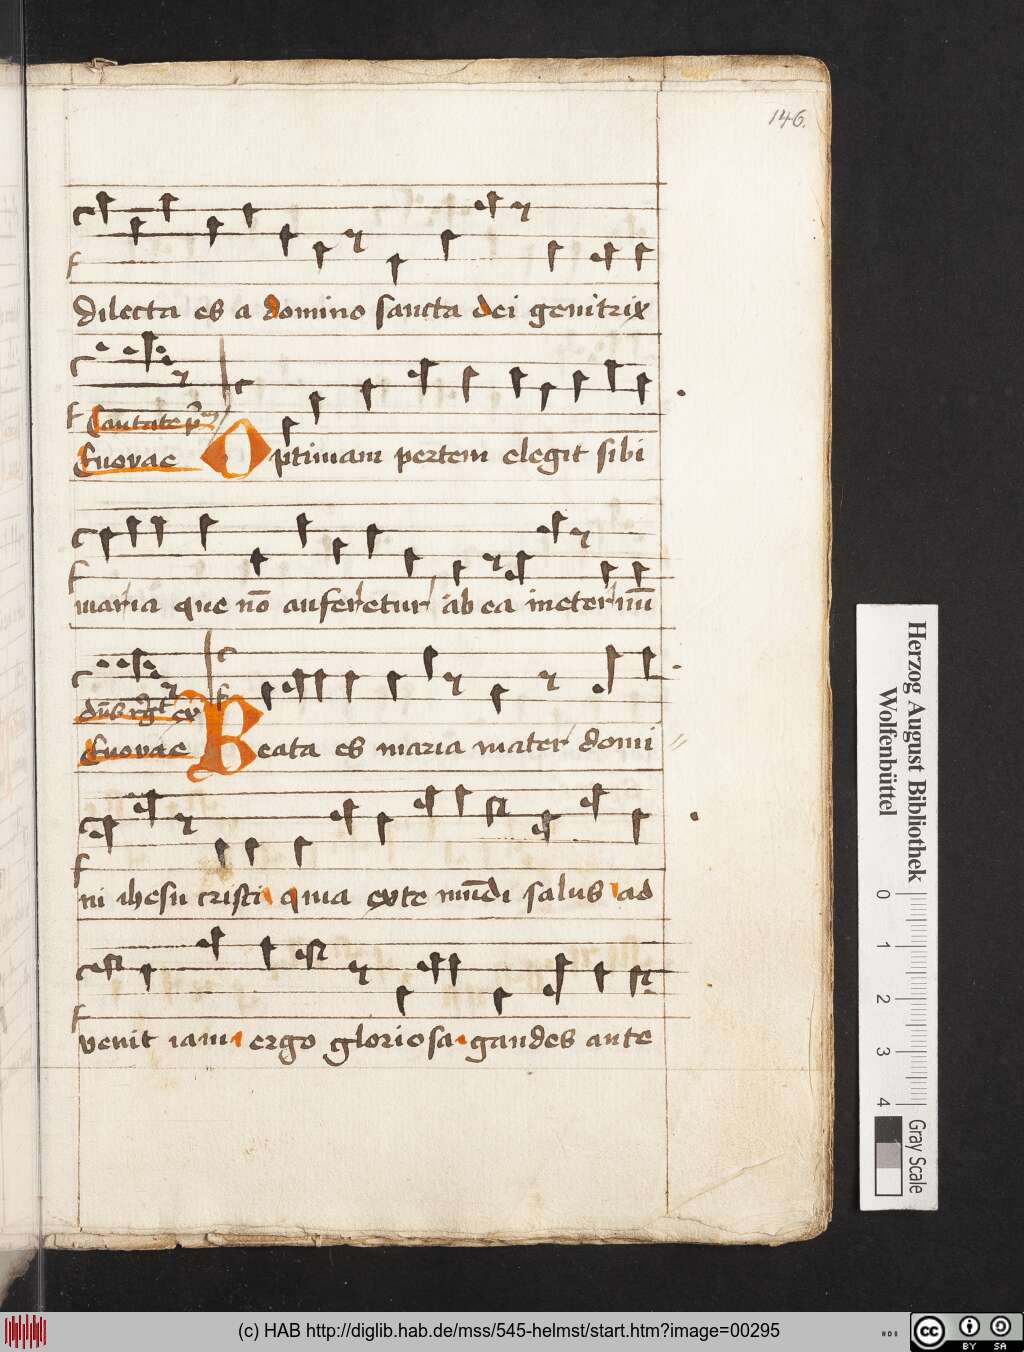 146.
dilecta es a domino sancta dei genitrix
Cantate p
Euovae Optimam pertem elegit sibi
maria que nō auferetur ab ea ineternū
Euovae Beata es maria mater domi
ni ihesu cristi quia exte mūdi salus ad
venit iam ergo gloriosa gaudes ante
Herzog August Bibliothek
Wolfenbüttel
0 1 2 3 4
Gray Scale
(c) HAB http://diglib.hab.de/mss/545-helmst/start.htm?image=00295
cc BY SA